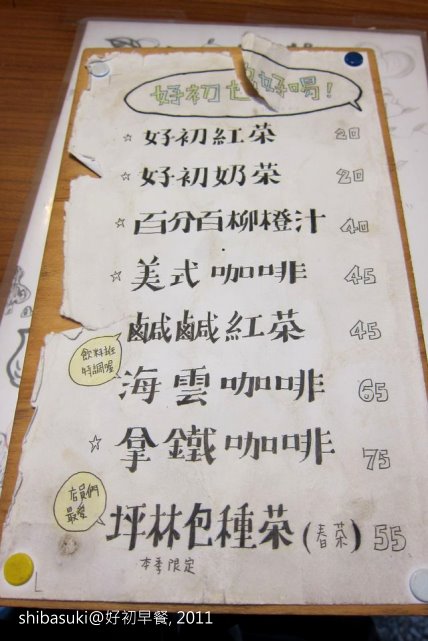 好初也好喝!
☆ 好初紅茶 20
☆ 好初奶茶 20
☆ 百分百柳橙汁 40
☆ 美式咖啡 45
鹹鹹紅茶 45
飲料班
特調喔
海雲咖啡 65
☆ 拿鐵咖啡 75
店員們
最愛
坪林包種茶(春茶) 55
本季限定
shibasuki@好初早餐, 2011